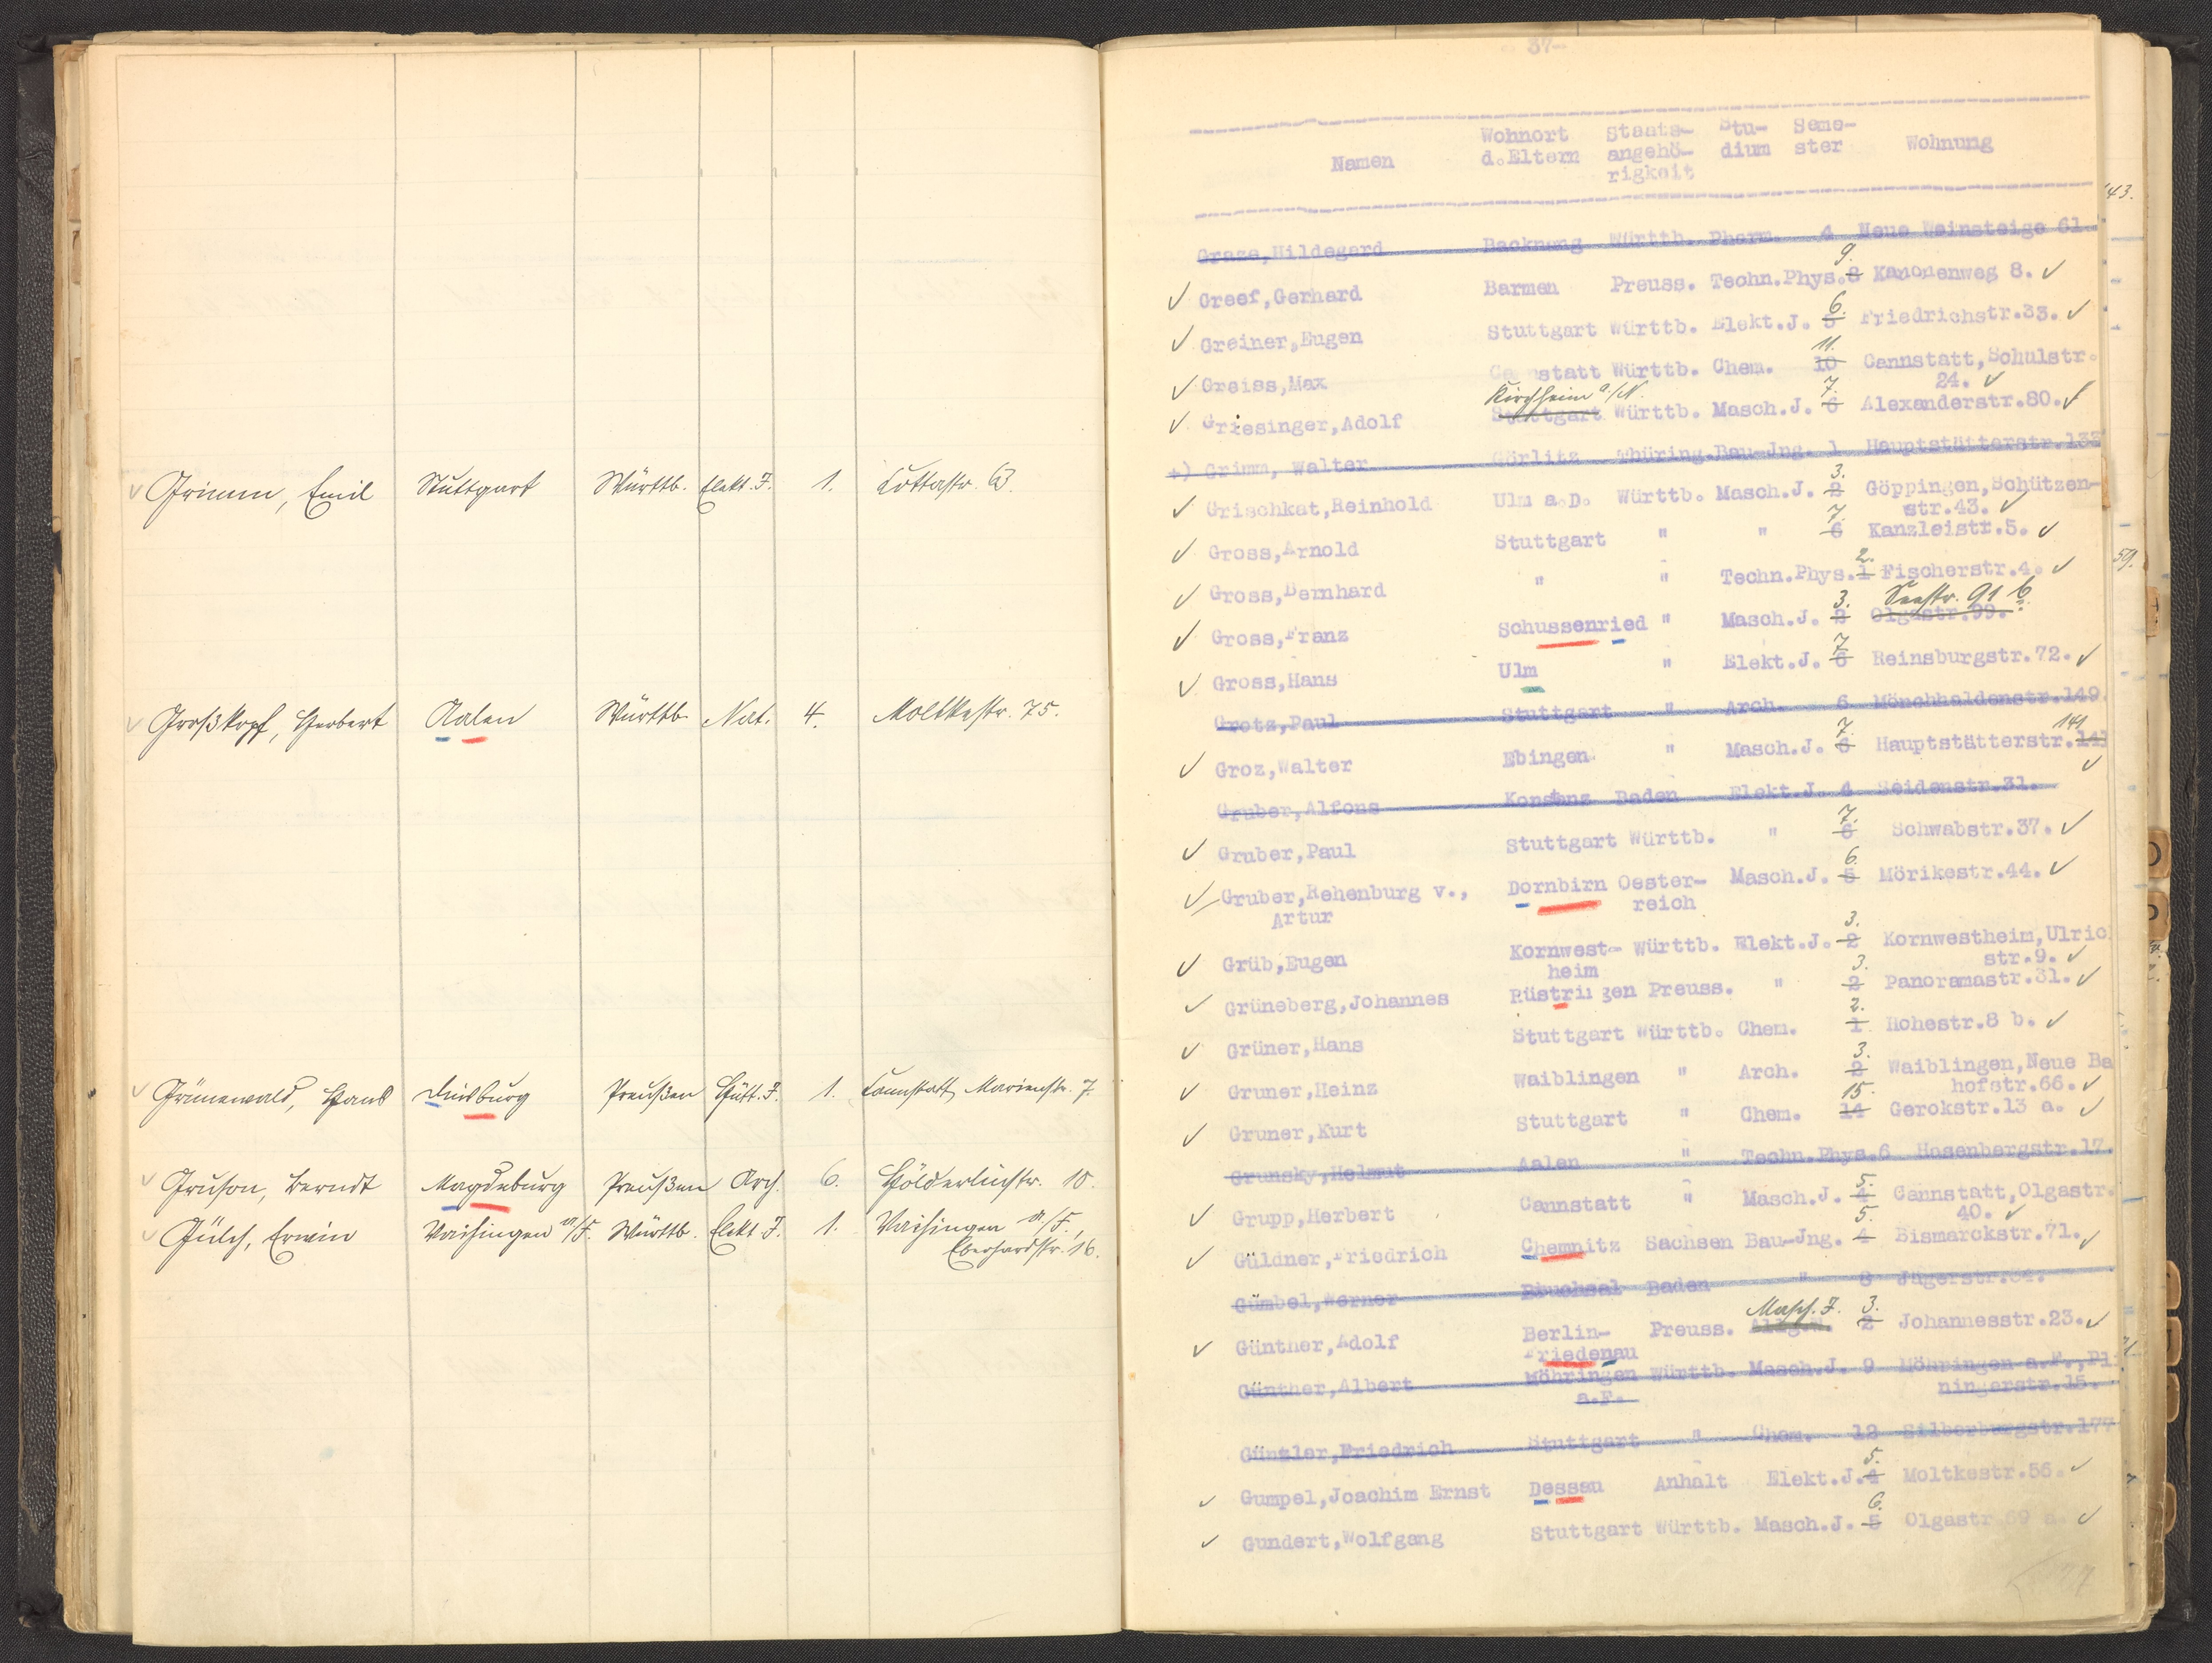 Grimm, Emil Stuttgart Württb. Elekt. J. 1. Cottastr. 63.
Großkopf, Herbert Aalen Württb. Nat. 4. Moltkestr. 75.
Grünewald, Hans Duisburg Preußen Hütt. J. 1. Cannstatt, Marienstr. 7.
Gruson, Berndt Magdeburg Preußen Arch. 6. Hölderlinstr. 10.
Gülch, Erwin Vaihingen a/F. Württb. Elekt. J. 1. Vaihingen a/F.,
Eberhardstr. 16.
37-
Wohnort Staats- Stu- Seme-
Namen d.Eltern angehö- dium ster Wohnung
rigkeit
Graze,Hildegard Backnang Württb. Pharm. 4 Neue Weinsteige 61
9.
✓ Greef,Gerhard Barmen Preuss. Techn.Phys.8 Kanonenweg 8. ✓
6.
✓ Greiner,Eugen Stuttgart Württb. Elekt.J. 5 Friedrichstr.33. ✓
11.
✓ Greiss,Max Cannstatt Württb. Chem. 10 Cannstatt,Schulstr.
24. ✓
Kirchheim a/N. 7.
✓ Griesinger,Adolf Stuttgart Württb. Masch.J. 6 Alexanderstr.80. ✓
+) Grimm, Walter Görlitz Thüring.Bau-Jng. 1 Hauptstätterstr.
3.
✓ Grischkat,Reinhold Ulm a.D. Württb. Masch.J. 2 Göppingen,Schützen-
str.43. ✓
7.
✓ Gross,Arnold Stuttgart " " 6 Kanzleistr.5. ✓
2.
✓ Gross,Bernhard " " Techn.Phys.1 Fischerstr.4. ✓
3. Seestr. 91 b.
✓ Gross,Franz Schussenried " Masch.J. 2 Olgastr.99.
7.
✓ Gross,Hans Ulm " Elekt.J. 6 Reinsburgstr.72. ✓
Grotz,Paul Stuttgart " Arch. 6 Mönchhaldenstr.149.
7. 141
✓ Groz,Walter Ebingen " Masch.J. 6 Hauptstätterstr.
✓
Gruber,Alfons Konstanz Baden Elekt.J. 4 Seidenstr.31.
7.
✓ Gruber,Paul Stuttgart Württb. " 6 Schwabstr.37. ✓
6.
✓ Gruber,Rehenburg v., Dornbirn Oester- Masch.J. 5 Mörikestr.44. ✓
Artur reich
3.
✓ Grüb,Eugen Kornwest- Württb. Elekt.J. 2 Kornwestheim,Ulric
heim str.9. ✓
3.
✓ Grüneberg,Johannes Rüstringen Preuss. " 2 Panoramastr.31. ✓
2.
✓ Grüner,Hans Stuttgart Württb. Chem. 1 Hohestr.8 b. ✓
3.
✓ Gruner,Heinz Waiblingen " Arch. 2 Waiblingen,Neue Ba
hofstr.66. ✓
15.
✓ Gruner,Kurt Stuttgart " Chem. 14 Gerokstr.13 a. ✓
Grunsky,Helmut Aalen " Techn.Phys.6 Hasenbergstr.17.
5.
✓ Grupp,Herbert Cannstatt " Masch.J. 4 Cannstatt,Olgastr.
40. ✓
5.
✓ Güldner,Friedrich Chemnitz Sachsen Bau-Jng. 4 Bismarckstr.71. ✓
Gümbel,Werner Bruchsal Baden " 8 Jägerstr.
Masch. J. 3.
✓ Günther,Adolf Berlin- Preuss. 2 Johannesstr.23. ✓
Friedenau
Günther,Albert Möhringen Württb. Masch.J. 9 Möhringen a.F.,Pl
a.F. ningerstr.15.
Güntzler,Friedrich Stuttgart " Chem. 12 Silberburgstr.177
5.
✓ Gumpel,Joachim Ernst Dessau Anhalt Elekt.J.4 Moltkestr.56. ✓
6.
✓ Gundert,Wolfgang Stuttgart Württb. Masch.J. 5 Olgastr.69 a. ✓